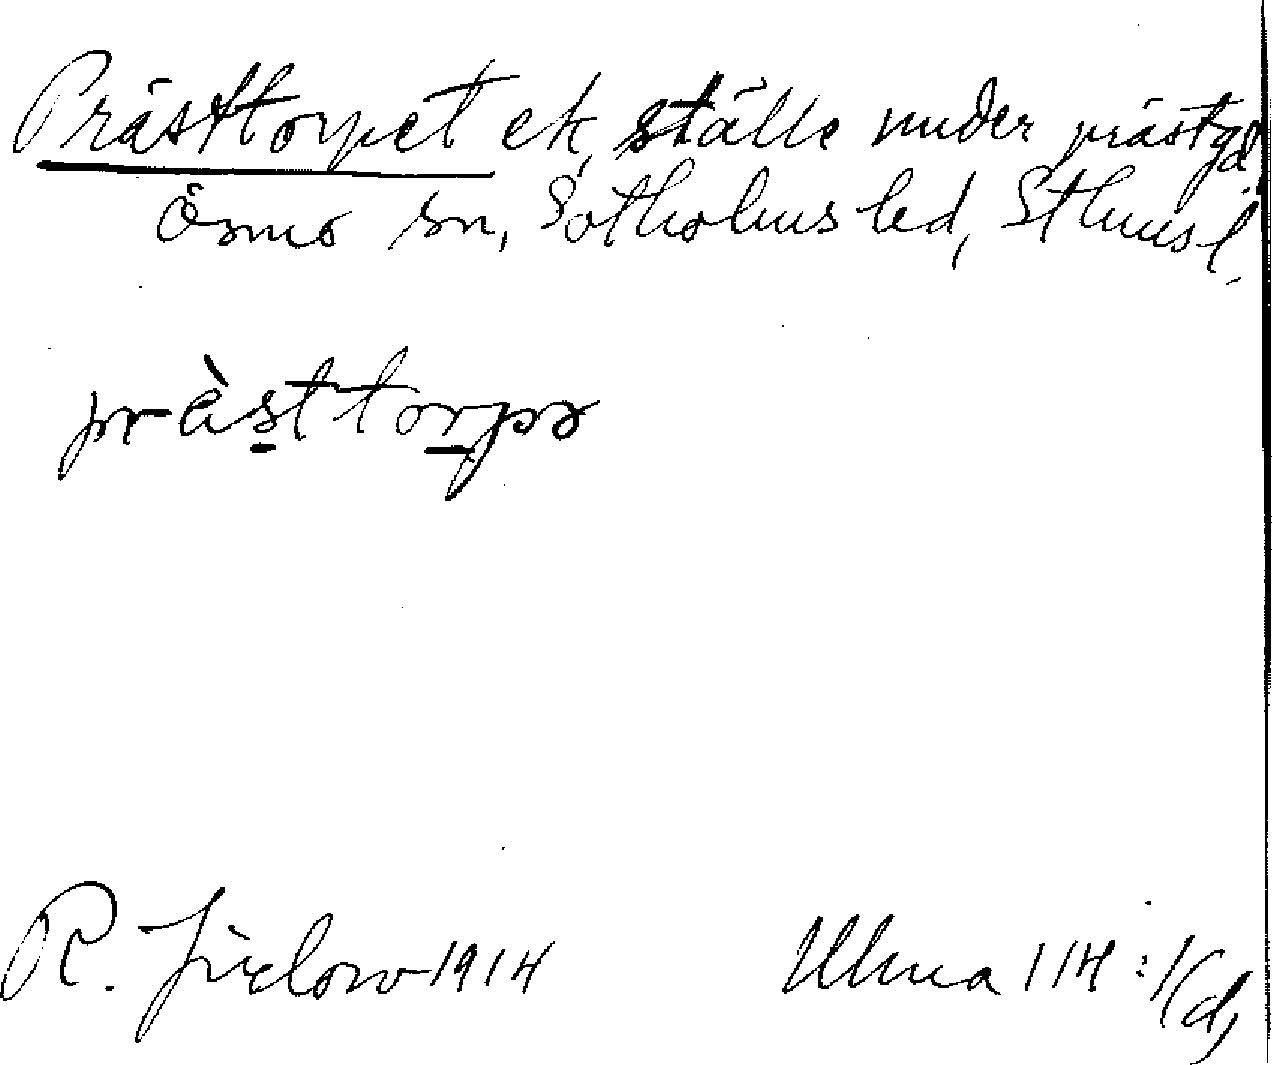 Prästtorpet ek, ställe under prästgå.
Ösmo sn, Sotholms hd, Sthms l.
pràsttorpə
R. Jirlow 1914
Ulma 114:1(d)